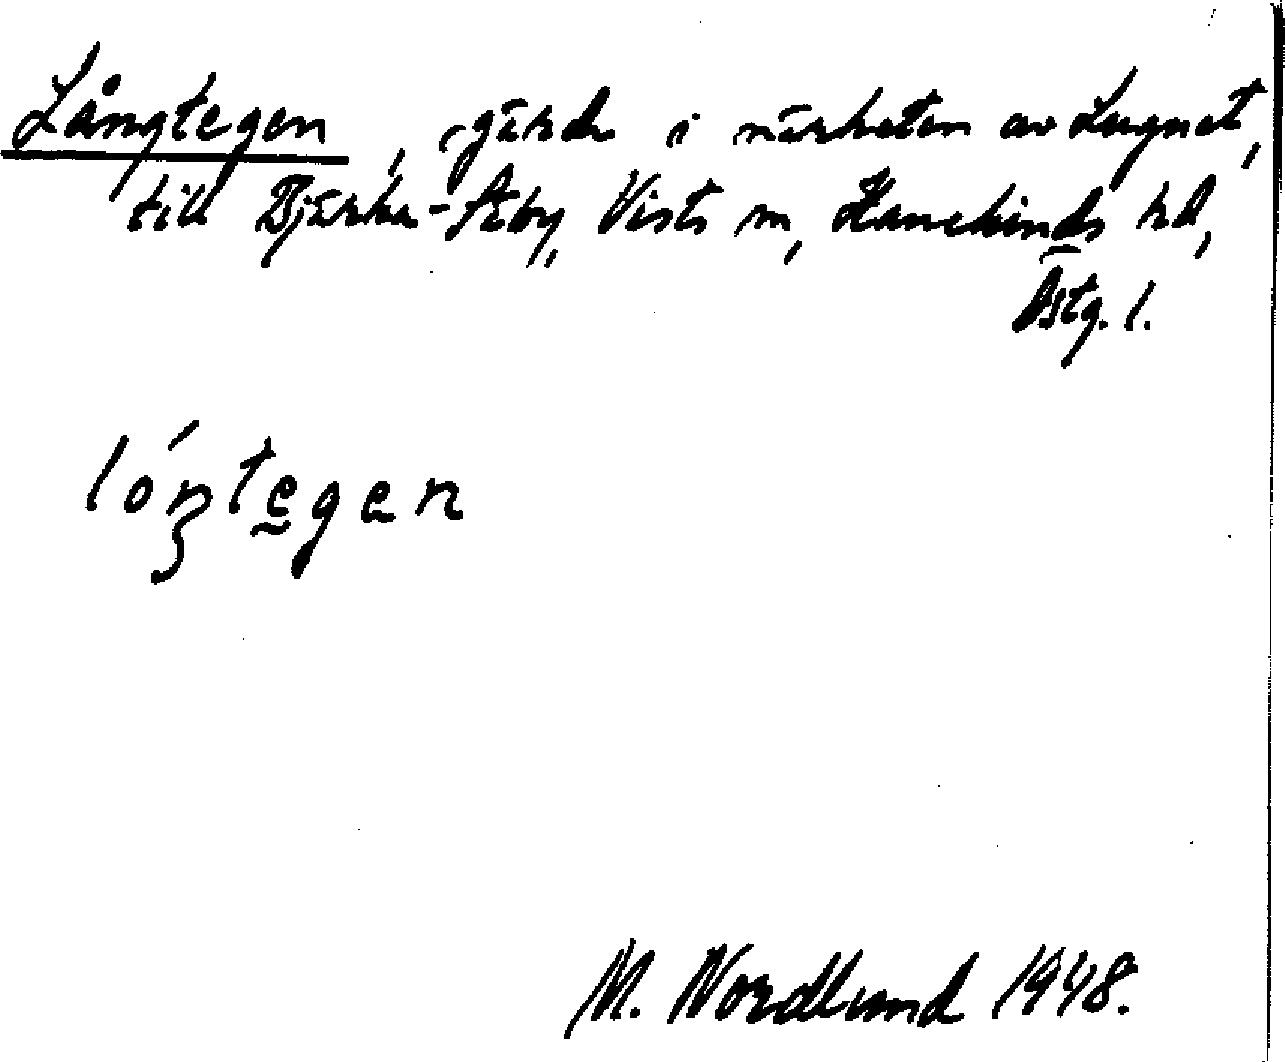 Långtegen, gärde i närheten av Lugnet,
till Bjärka-Säby, Vists sn, Hanekinds hd,
Östg. l.
lóŋtegen
M. Nordlund 1948.